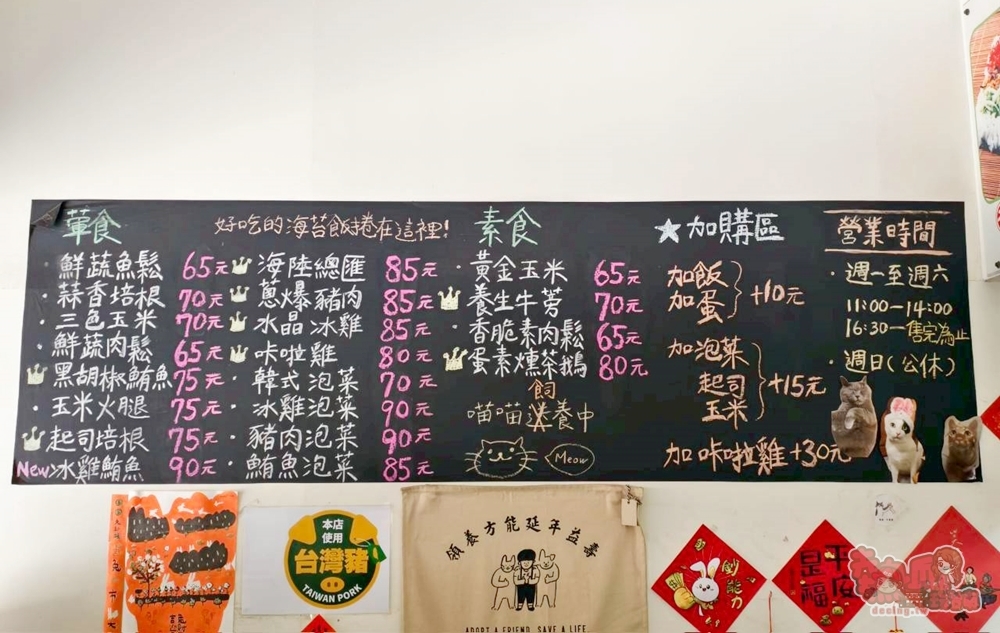 葷食
好吃的海苔飯捲在這裡!
· 鮮蔬魚鬆 65元
· 蒜香培根 70元
· 三色玉米 70元
· 鮮蔬肉鬆 65元
黑胡椒鮪魚 75元
· 玉米火腿 75元
起司培根 75元
New 冰雞鮪魚 90元
海陸總匯 85元
蔥爆豬肉 85元
水晶冰雞 85元
咔啦雞 80元
· 韓式泡菜 70元
· 冰雞泡菜 90元
· 豬肉泡菜 90元
· 鮪魚泡菜 85元
素食
· 黃金玉米 65元
養生牛蒡 70元
· 香脆素肉鬆 65元
蛋素燻茶鵝 80元
飼
喵喵養中
Meow
★加購區
加飯
加蛋
+10元
加泡菜
起司
玉米
+15元
加咔啦雞+30元
營業時間
· 週一至週六
11:00-14:00
16:30-售完為止
· 週日(公休)
本店
使用
台灣豬
TAIWAN PORK
領養方能延年益壽
ADOPT A FRIEND, SAVE A LIFE
鈔能力
平安
是福